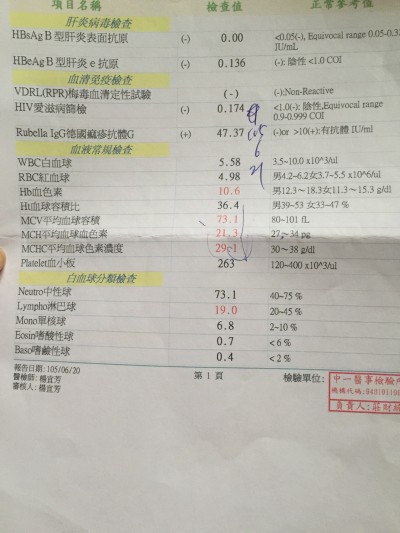 項目名稱 檢查值 正常參考值
肝炎病毒檢查
HBsAg B 型肝炎表面抗原 (-) 0.00 <0.05(-), Equivocal range 0.05-0.
IU/mL
HBeAg B 型肝炎 e 抗原 (-) 0.136 (-): 陰性 <1.0 COI
血清免疫檢查
VDRL(RPR)梅毒血清定性試驗 (-) (-):Non-Reactive
HIV愛滋病篩檢 (-) 0.174 <1.0(-): 陰性,Equivocal range
0.9-0.999 COI
Rubella IgG德國痲疹抗體G (+) 47.37 (-)or >10(+):有抗體 IU/ml
血液常規檢查
WBC白血球 5.58 3.5~10.0 x10^3/ul
RBC紅血球 4.98 男4.2~6.2女3.7~5.5 x10^6/ul
Hb血色素 10.6 男12.3～18.3女11.3～15.3 g/dl
Ht血球容積比 36.4 男39~53 女33~47 %
MCV平均血球容積 73.1 80~101 fL
MCH平均血球血色素 21.3 27~34 pg
MCHC平均血球色素濃度 29.1 30～38 g/dl
Platelet血小板 263 120~400 x10^3/ul
白血球分類檢查
Neutro中性球 73.1 40~75 %
Lympho淋巴球 19.0 20~45 %
Mono單核球 6.8 2~10 %
Eosin嗜酸性球 0.7 < 6 %
Baso嗜鹼性球 0.4 < 2 %
報告日期: 105/06/20 第 1 頁 檢驗單位: 中一醫事檢驗所
醫檢師: 楊宜芳
審核人: 楊宜芳
負責人: 莊財